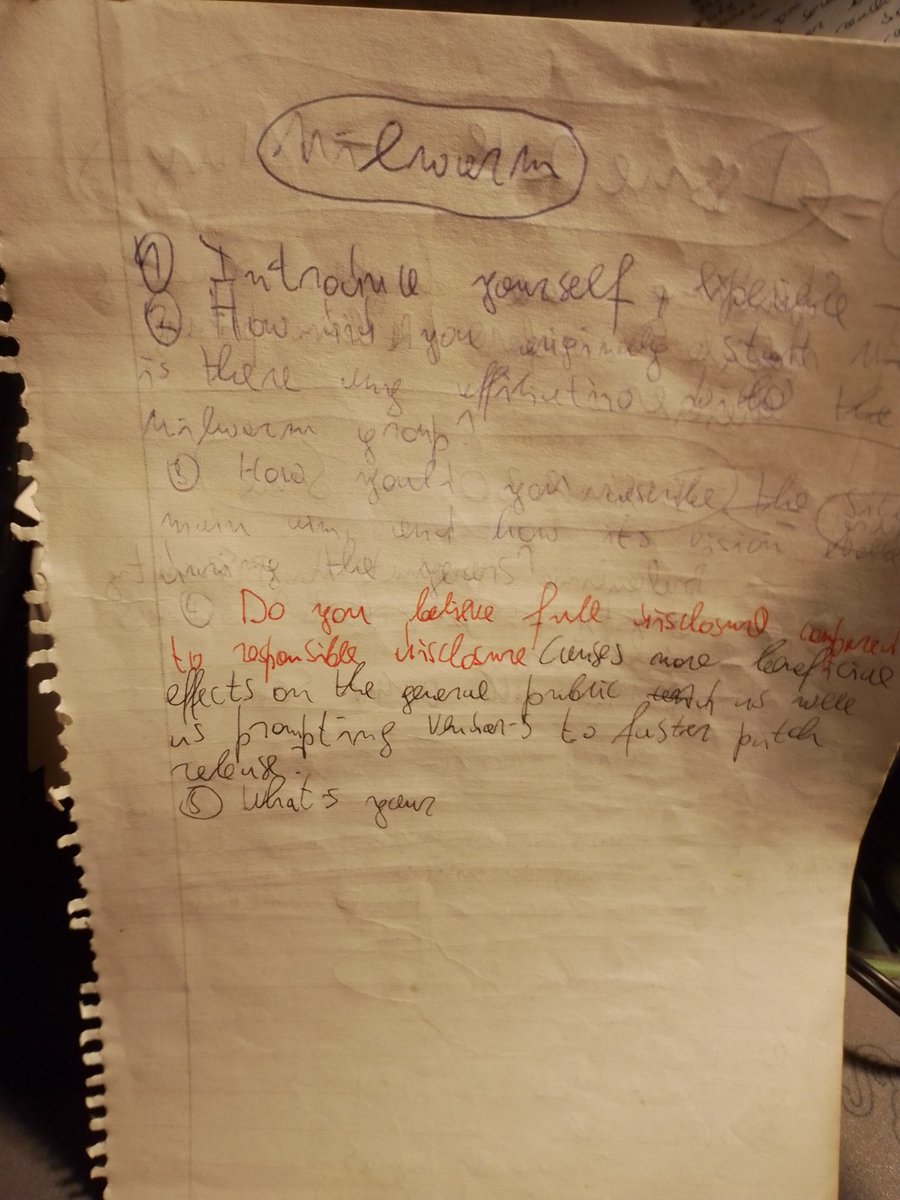 Milworm
① Introduce yourself, experience -
② How did you originaly start
is there any affiliation with the
Milworm group?
③ How would you describe the
main aim, and how its vision
during the years?
④ Do you believe full disclosure compared
to responsible disclosure causes more beneficial
effects on the general public as well
as prompting vendors to faster patch
release.
⑤ What's your